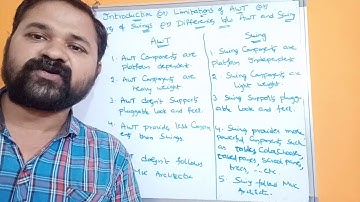 Introduction (or) Limitations of AWT (or)
of Swings (or) Differences b/w AWT and Swing
AWT
1. AWT Components are platform dependent
2. AWT Components are heavy weight
3. AWT doesn't supports pluggable look and feel.
4. AWT provides less Components than Swings.
doesn't follows
MVC Architecture
Swing
1. Swing Components are platform Independent
2. Swing Components are light weight.
3. Swing supports pluggable look and feel.
4. Swing provides more powerful components such as tables, ColorChooser, tabbed panes, scroll panes, trees, ...etc.
5. Swing follows MVC Architect.